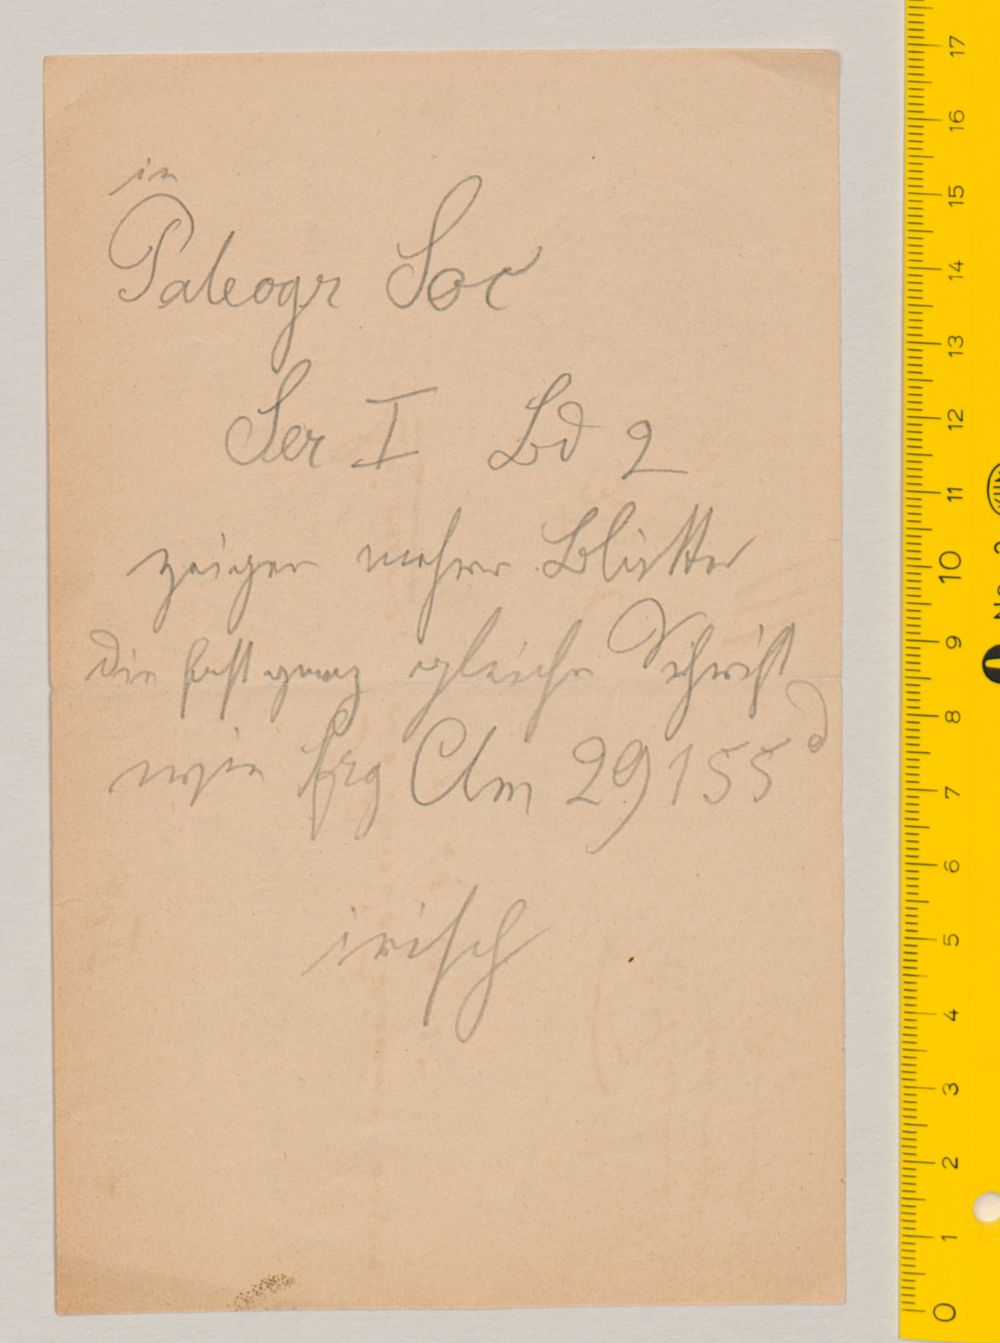 in
Paleogr Soc
Ser I Bd 2
zeigen mehrere Blätter
die fast ganz gleiche Schrift
wie frg Clm 29155 d
irisch
17
16
15
14
13
12
11
10
9
8
7
6
5
4
3
2
1
0